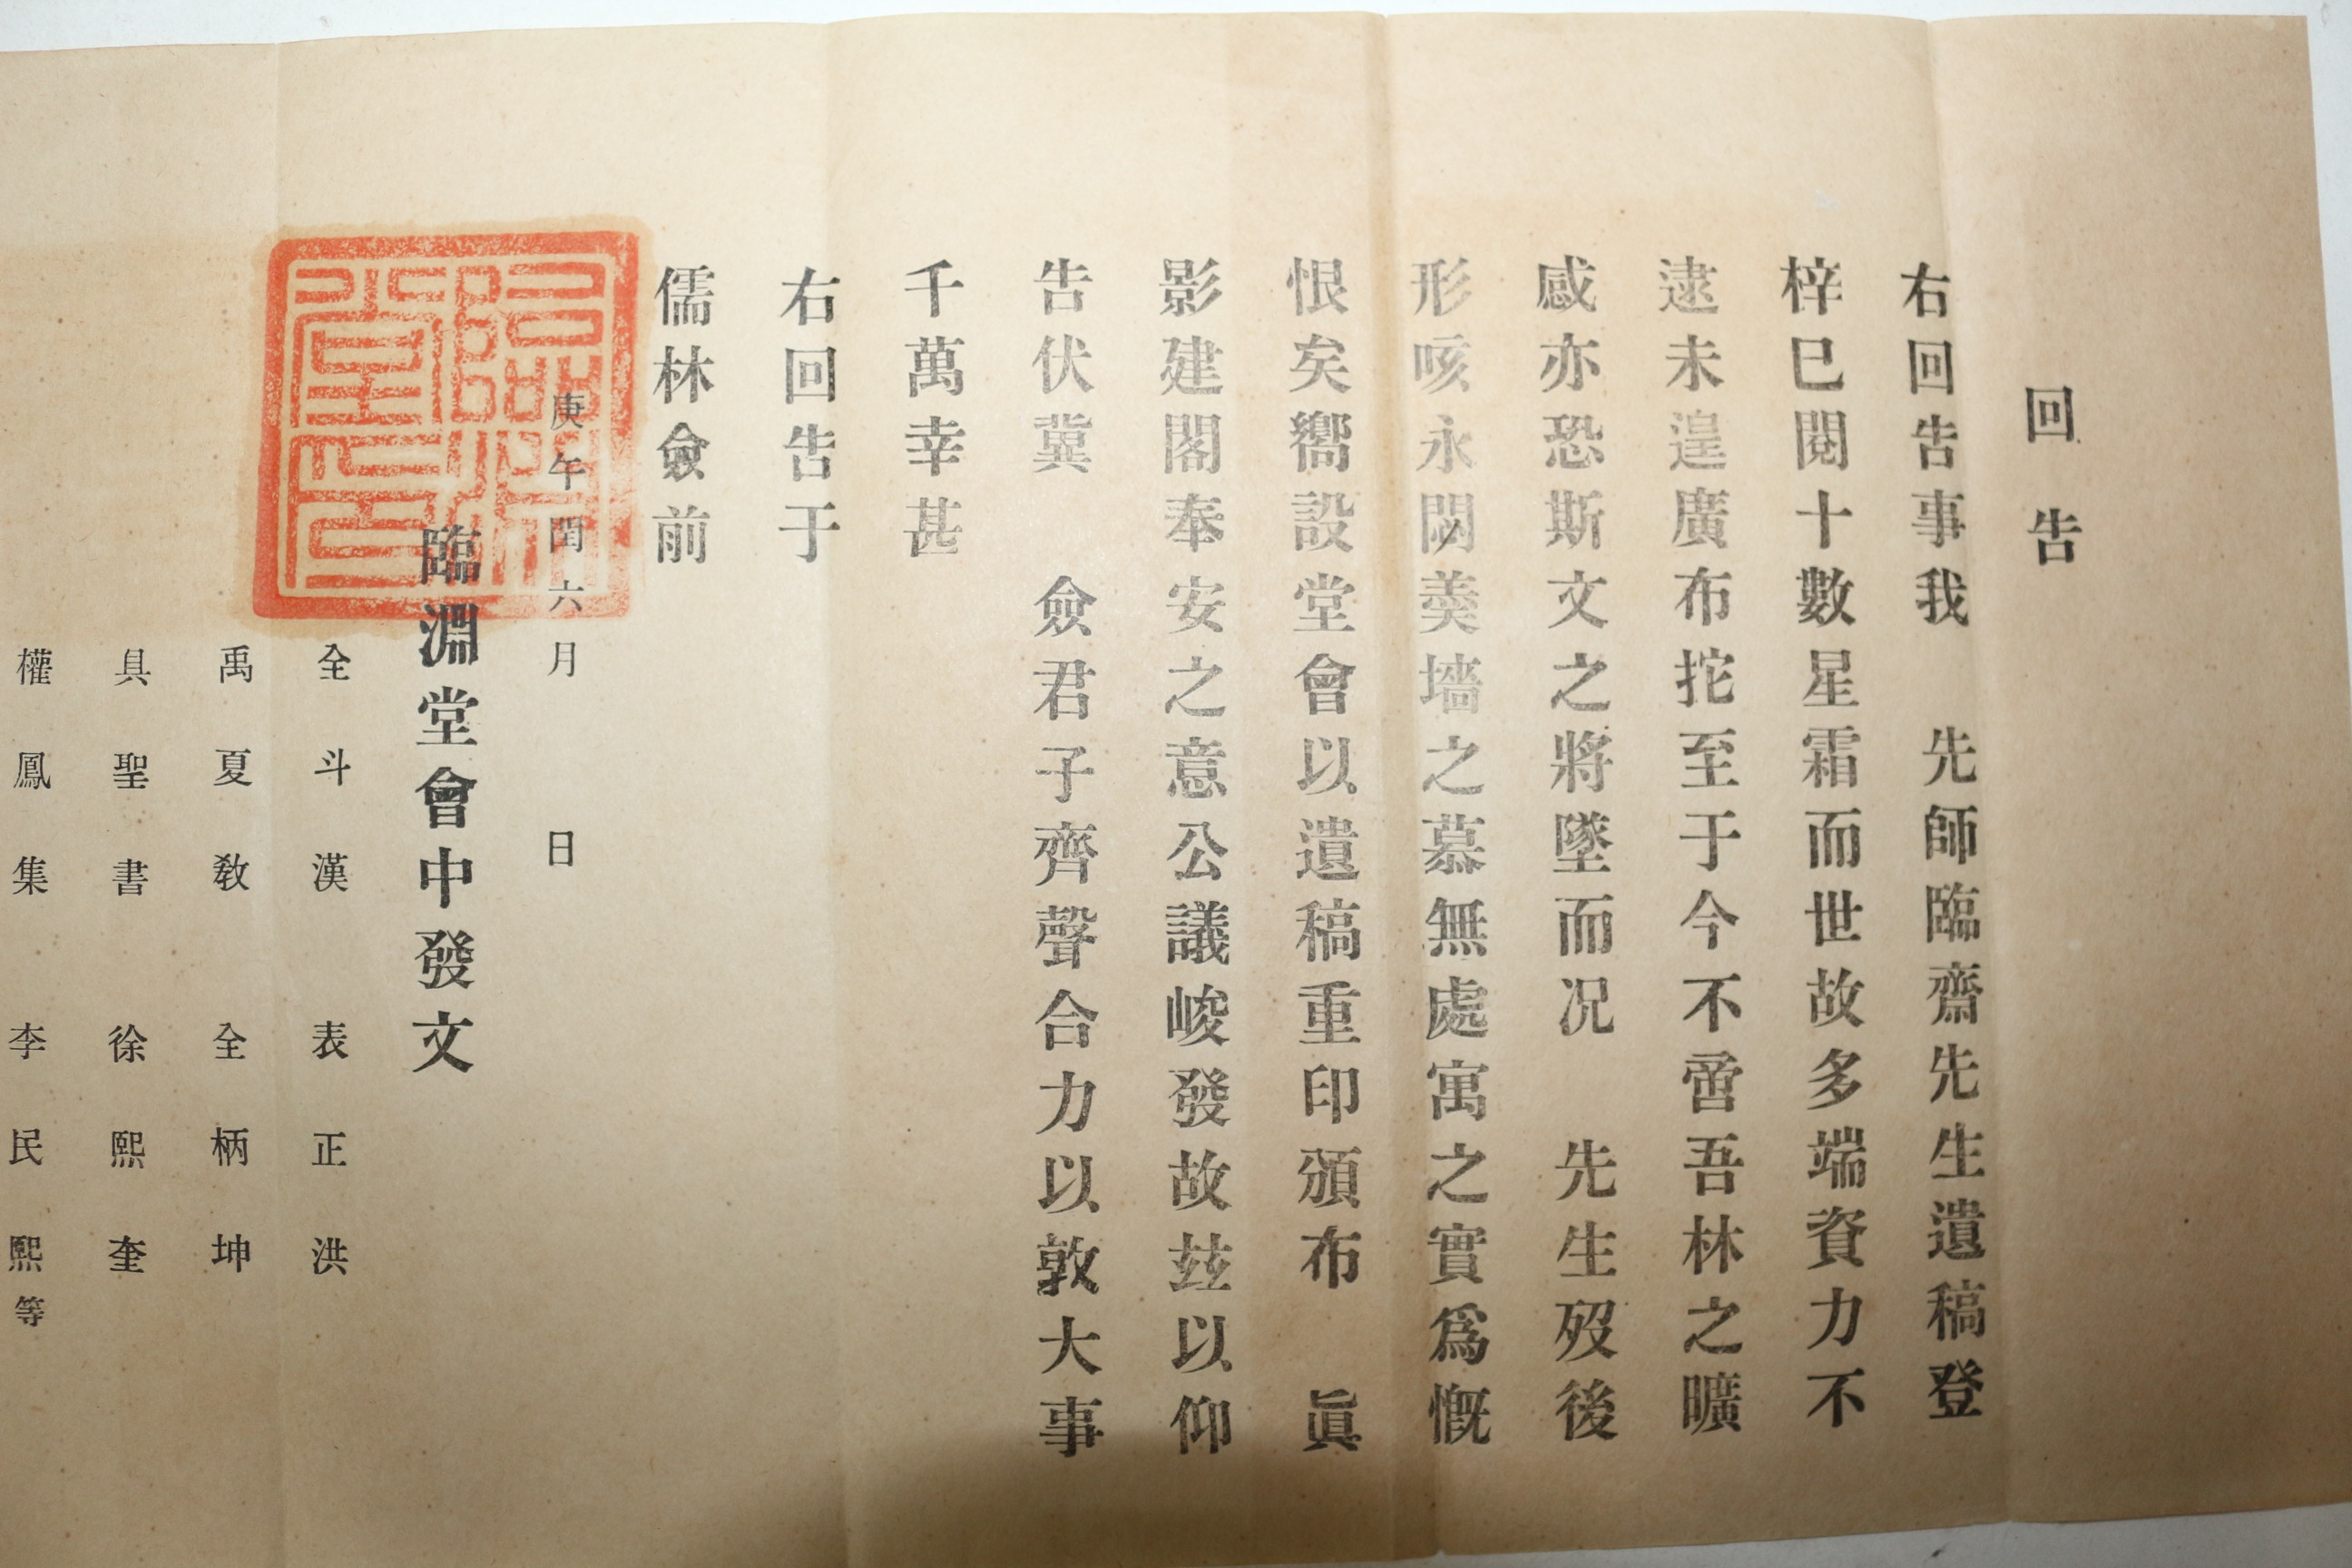 回告
右回告事我 先師臨齋先生遺稿登
梓已閱十數星霜而世故多端資力不
逮未遑廣布拕至于今不啻吾林之曠
感亦恐斯文之將墜而况 先生歿後
形咳永閟羹墻之慕無處寓之實爲慨
恨矣嚮設堂會以遺稿重印頒布 眞
影建閣奉安之意公議峻發故玆以仰
告伏冀 僉君子齊聲合力以敦大事
千萬幸甚
右回告于
儒林僉前
庚午閏六月 日
臨淵堂會中發文
全斗漢 表正洪
禹夏敎 全柄坤
具聖書 徐熙奎
權鳳集 李民熙等